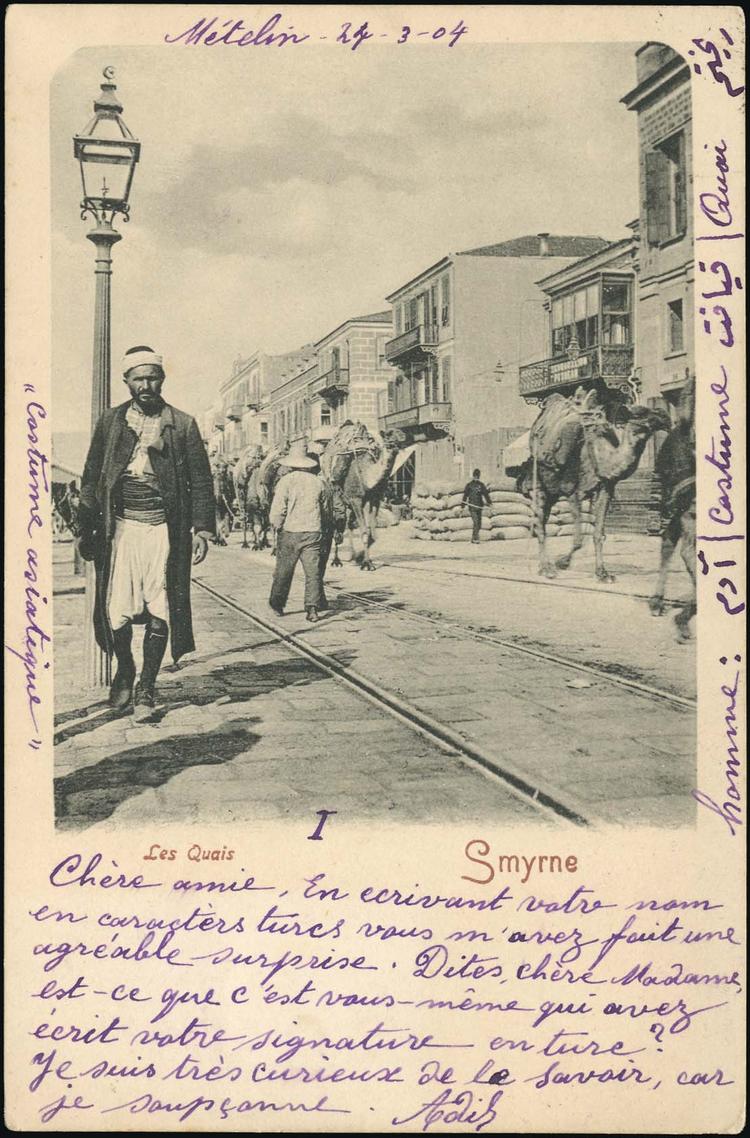 Mételin - 27-3-04
„Costume asiatique„
homme: آدم | Costume قيافت | Quai رختم
I
Les Quais
Smyrne
Chère amie, En ecrivant votre nom
en caractèrs turcs vous m'avez fait une
agréable surprise. Dites, chère Madame,
est-ce que c'est vous-même qui avez
écrit votre signature en turc?
Je suis très curieux de le savoir, car
je soupçonne. Adil